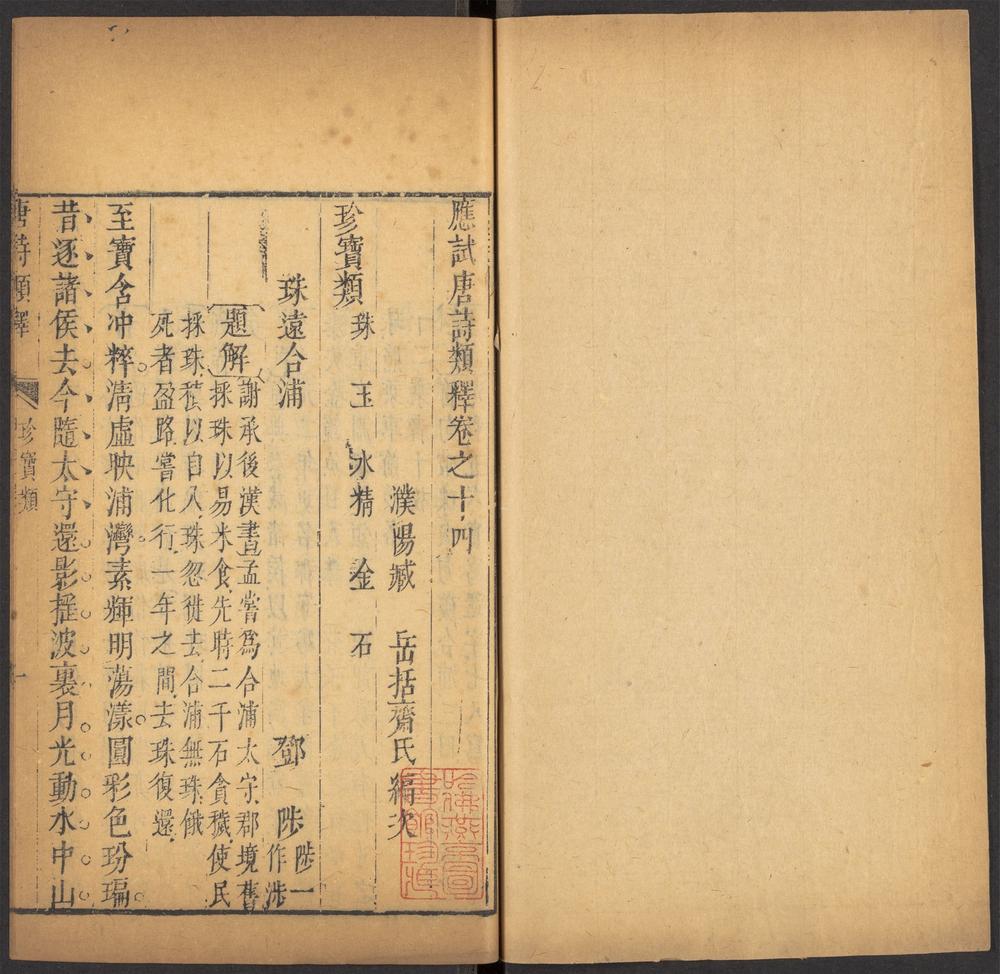 應試唐詩類釋卷之十四
濮陽臧 岳括齋氏編次
珍寶類 珠 玉 水精 金 石
珠還合浦 鄧 陟 陟一作涉
題解 謝承後漢書孟嘗爲合浦太守郡境舊
採珠以易米食先時二千石貪穢使民
採珠積以自入珠忽徙去合浦無珠餓
死者盈路嘗化行一年之間去珠復還
至寶含冲粹清虛映浦灣素輝明蕩漾圓彩色玢㻞
昔逐諸侯去今隨太守還影搖波裏月光動水中山
唐詩類釋 珍寶類 一